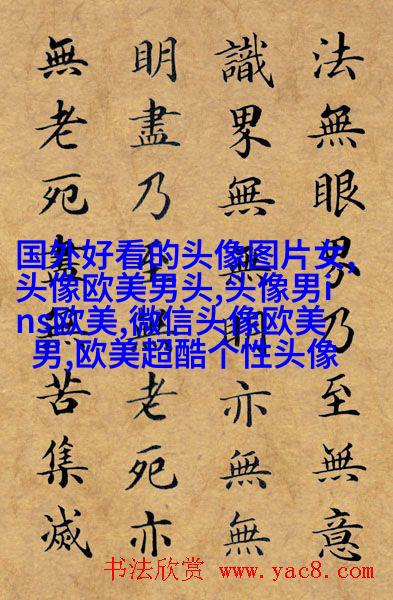 法無眼界乃至無意
識界無無明亦無無
明盡乃至無老死亦
無老死盡無苦集滅
国外好看的头像图片女,
头像欧美男头,头像男i
ns欧美,微信头像欧美
男,欧美超酷个性头像
书法欣赏 www.yac8.com